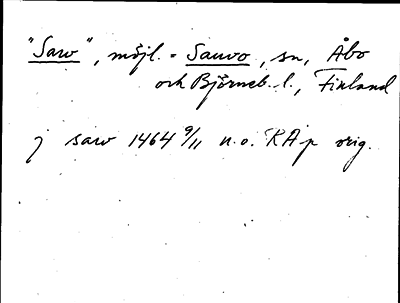 "Saw", möjl. = Sauvo, sn, Åbo
och Björneb. l., Finland
j saw 1464 9/11 n.o. RAp orig.